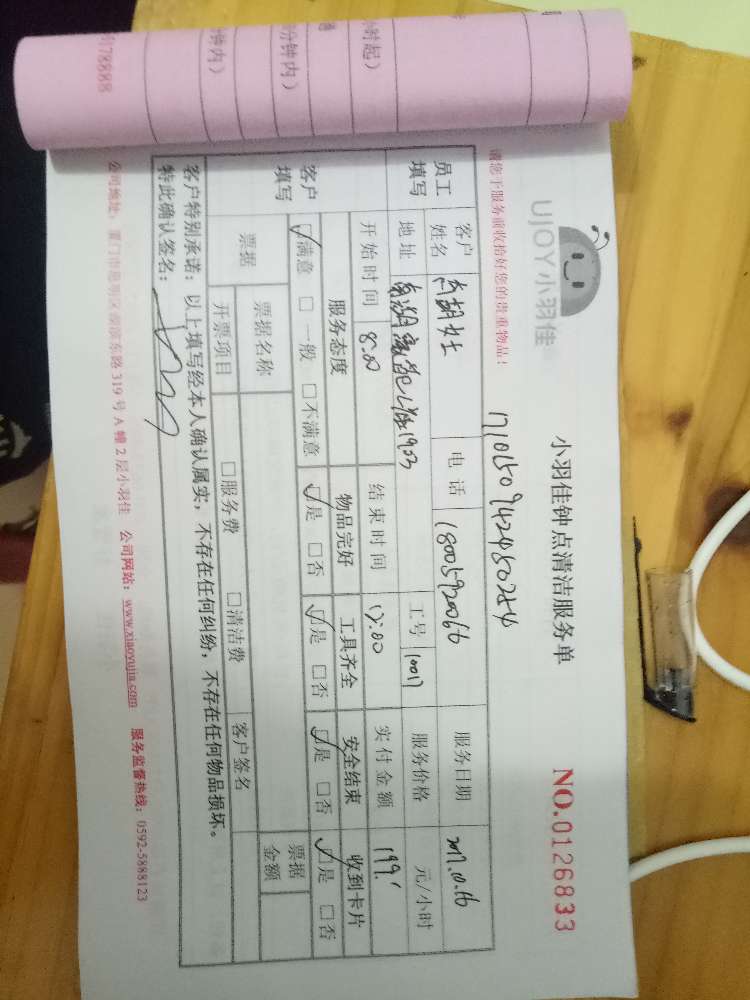 UJOY小羽佳
小羽佳钟点清洁服务单
NO.0126833
请您于服务前收拾好您的贵重物品！
17101509424850254
员工填写
客户姓名 胡女士 电话 18005920066 服务日期 2017.10.16
地址 1903 工号 1001 服务价格 元/小时
开始时间 8:00 结束时间 12:00 实付金额 199.
客户填写
服务态度 物品完好 工具齐全 安全结束 收到卡片
☑满意 □一般 □不满意 ☑是 □否 ☑是 □否 ☑是 □否 ☑是 □否
票据 票据名称 票据金额
开票项目 □服务费 □清洁费 客户签名
客户特别承诺：以上填写经本人确认属实，不存在任何纠纷，不存在任何物品损坏。
特此确认签名：
公司地址：厦门市思明区湖滨东路319号A幢2层小羽佳 公司网站：www.xiaoyujia.com 服务监督热线：0592-5888123
小时起）
分钟内）
钟内）
5178888